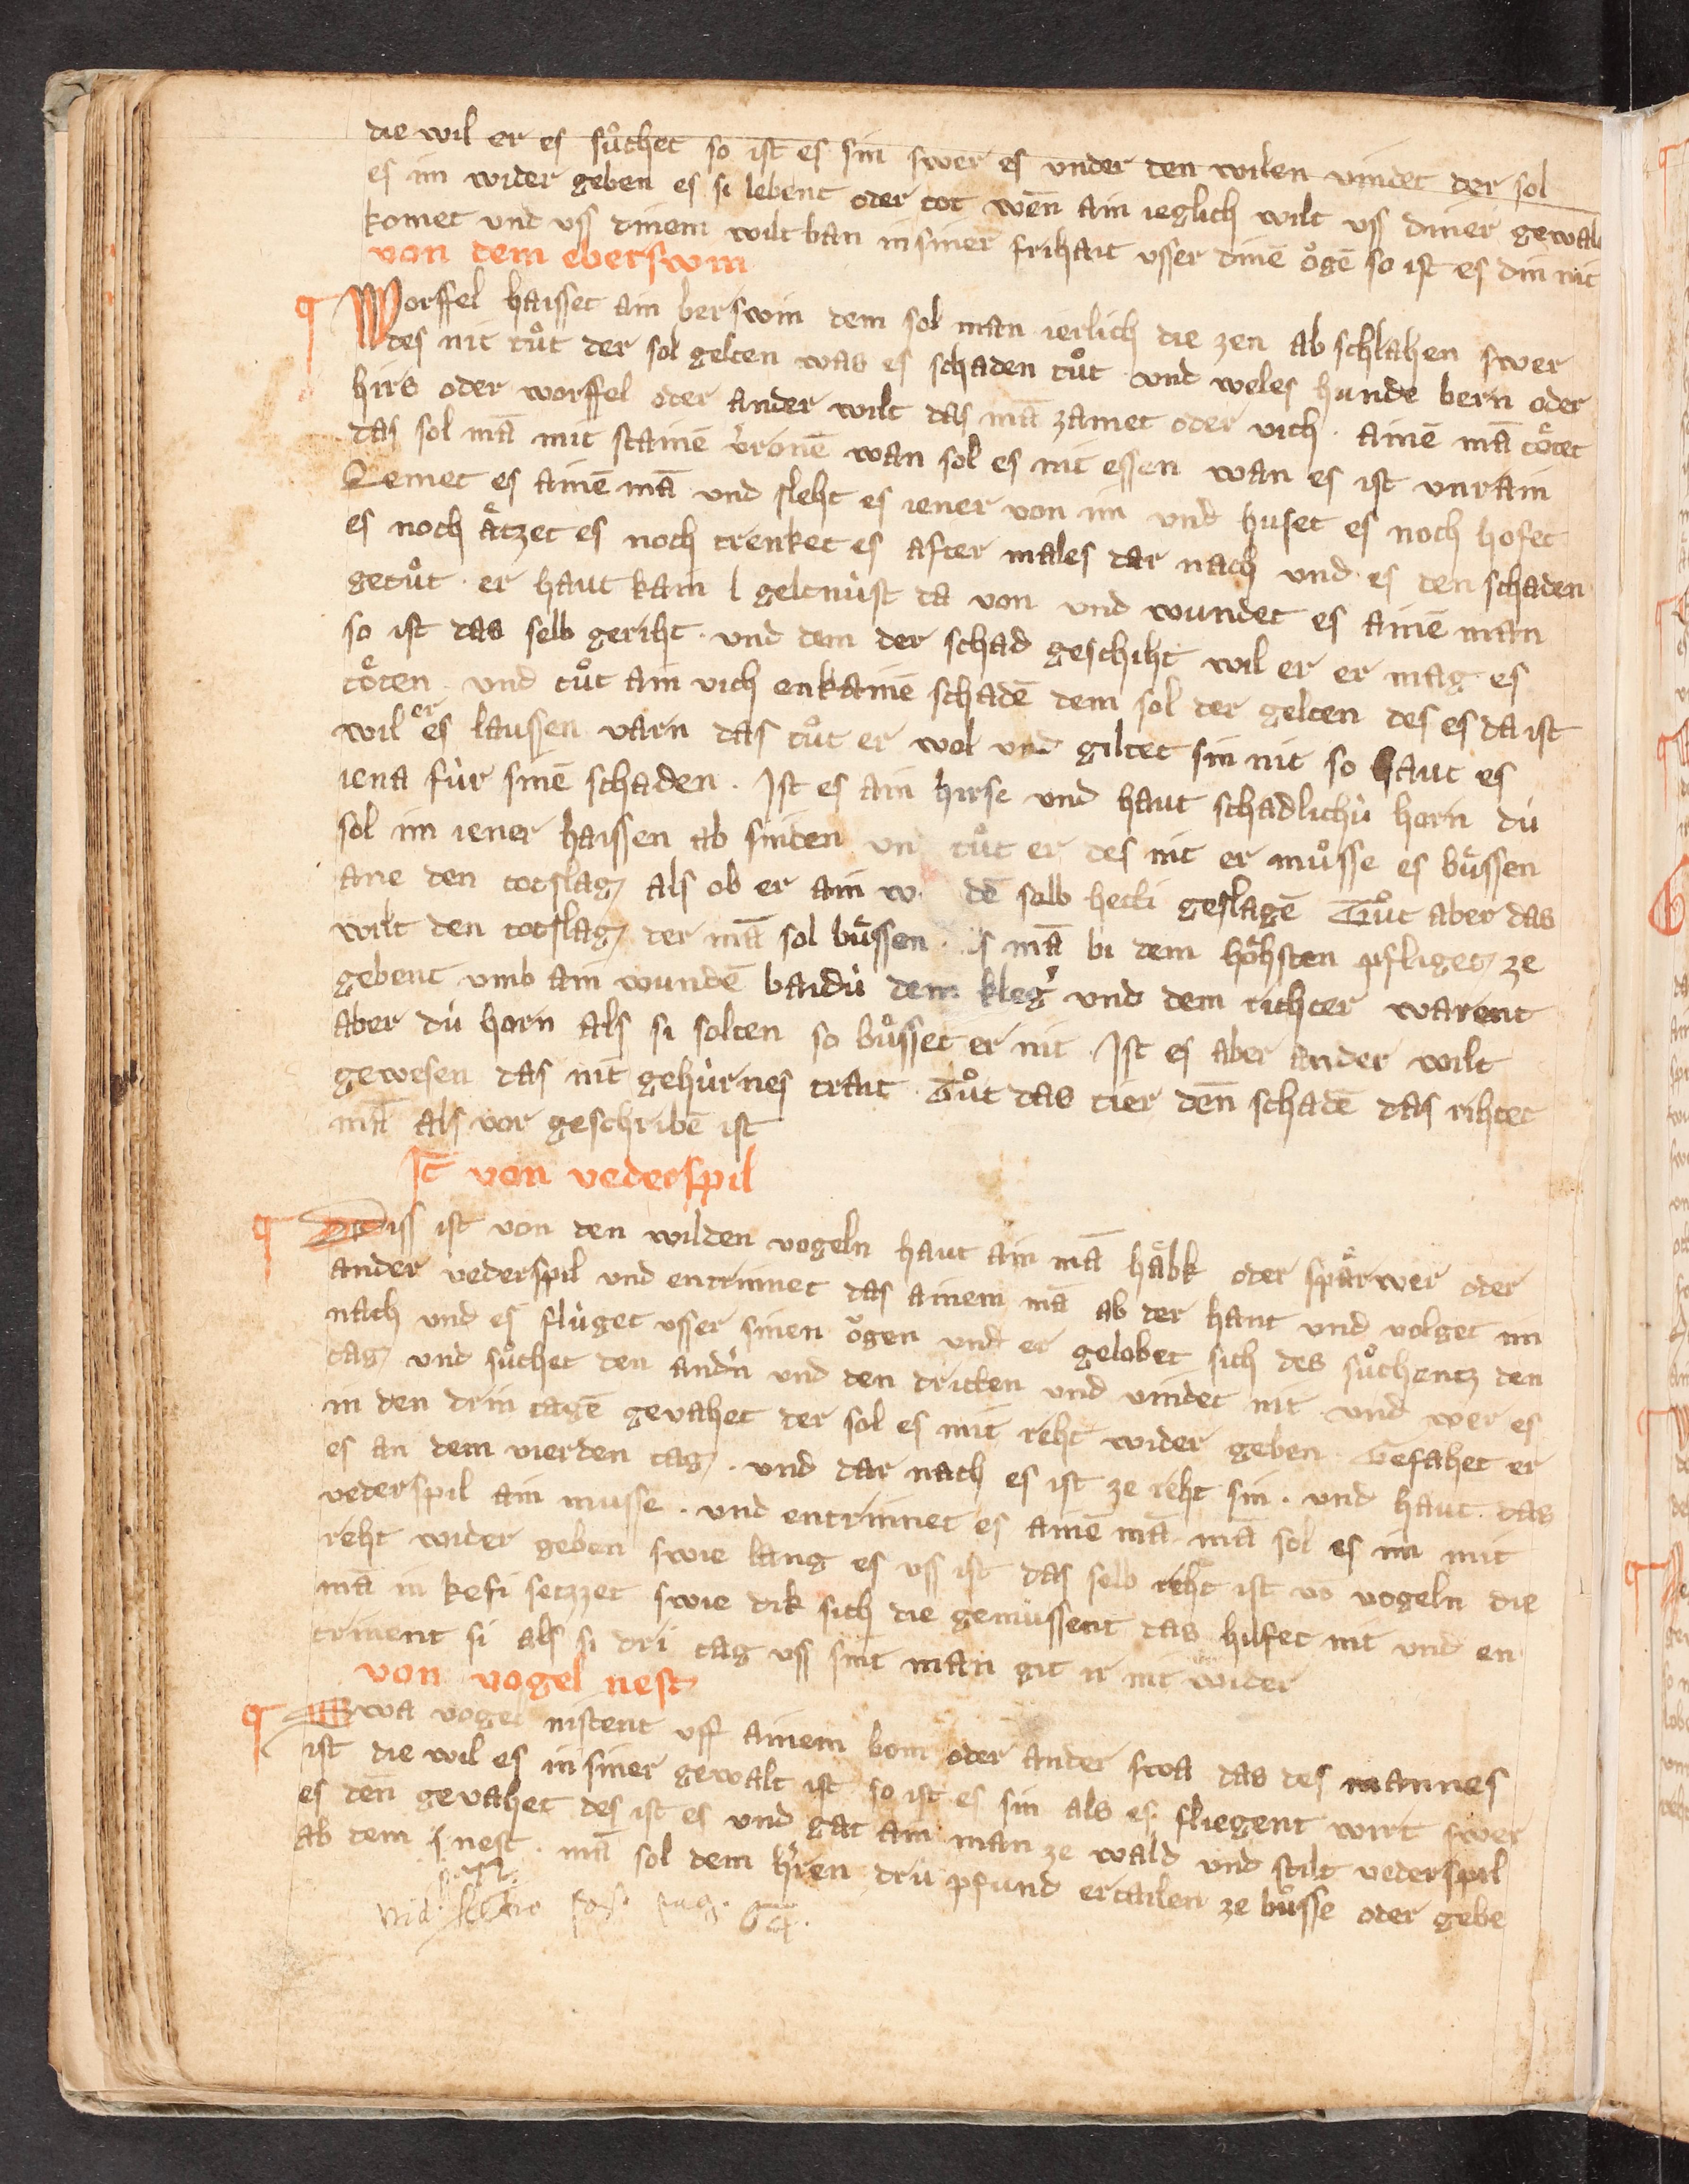 die wil er es sůchet so ist es sin swer es vnder den wilen vindet der sol
es im wider geben es si lebent oder tot wen̄ ain ieglich wilt vss diner gewalt
komet vnd vss dinem wiltban in siner frihait vsser dinē ǒgē so ist es din nit
von dem eberswin
Worffel haisset ain berswin dem sol man ierlich die zen ab schlahen swer
des nit tůt der sol gelten was es schaden tůt vnd weles hunde bern oder
hirs oder worffel oder ander wilt das mā zamet oder vich . ainē mā tǒtet
das sol mā mit stainē v̓ronē wan sol es nit essen wan es ist vnrain
Lemet es ainē mā vnd sleht es iener von im vnd huset es noch hofet
es noch ätzet es noch trenket es after males dar nach vnd es den schaden
getůt . er haut kain l geltnùst da von vnd wundet es ainē man
so ist das selb geriht . vnd dem der schad geschiht wil er er mag es
töten . vnd tůt ain vich enkainē schadē dem sol der gelten des es da ist
wil er es laussen varn das tůt er wol vnd giltet sin nit so haut es
iena fùr sinē schaden . Ist es ain hirse vnd haut schadlichù horn dù
sol im iener haissen ab sniden vn tůt er des nit er můsse es bůssen
ane den totslag als ob er ain w dē selb hetti geslagē Tůt aber das
wilt den totslag der mā sol bůssen . s mā bi dem höhsten pfliget ze
gebent vmb ain wundē baidù dem kleg̓ vnd dem richter warent
aber dù horn als si solten so bůsset er nit . Ist es aber ander wilt
gewesen das nit gehùrnes trait . Tůt das tier den̄ schadē das rihtet
mā als vor geschribē ist
It̄ von vederspil
Diss ist von den wilden vogeln haut ain mā häbk oder spärwer oder
ander vederspil vnd entrinnet das ainem mā ab der hant vnd volget im
nach vnd es flùget vsser sinen ögen vnd er gelobet sich des sůchentz den
tag vnd sůchet den and̓n vnd den dritten vnd vindet nit vnd wer es
in den drin tagē gevahet der sol es mit reht wider geben . Gefahet er
es an dem vierden tag . vnd dar nach es ist ze reht sin . vnd haut das
vederspil ain musse . vnd entrinnet es ainē mā mā sol es im mit
reht wider geben swie lang es vss ist das selb reht ist vō vogeln die
mā in kefi setzzet swie dik sich die gemussent das hilfet nit vnd en
trinent si als si dri tag vss sint man git ir nit wider
von vogel nest
Swa vogel nistent vff ainem bom oder ander swa das des mannes
ist die wil es in siner gewalt ist so ist es sin als es fliegent wirt swer
es den̄ gevahet des ist es vnd gat ain man ze wald vnd stilt vederspil
ab dem nest . mā sol dem h̓ren drù pfund ertailen ze bůsse oder gebe
vid. pag. 64.